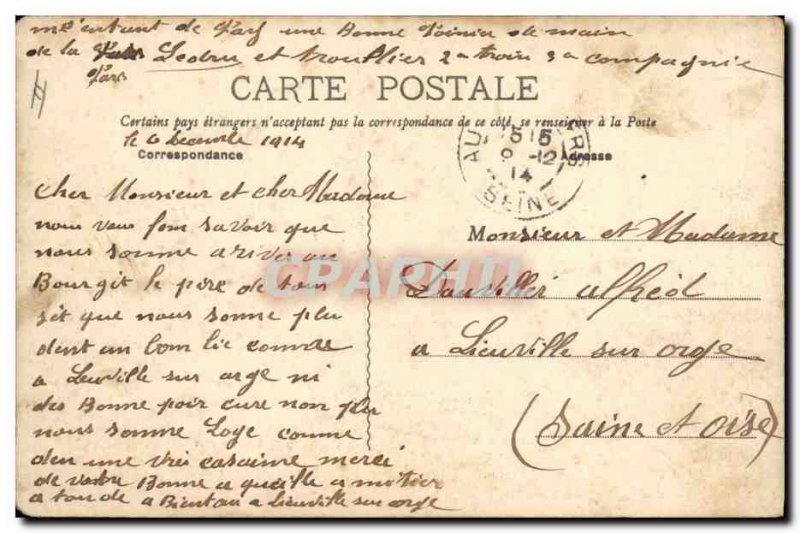 de Paris une Bonne Poiniée de main
de la Part Ledru et trouflier 2e train 3e compagnie
Part
CARTE POSTALE
Certains pays étrangers n'acceptant pas la correspondance de ce côté, se renseigner à la Poste
le 6 decembre 1914
Correspondance
Adresse
AU RS
5 15
9 -12
14
SEINE
cher Monsieur et cher Madame
nous vous fon savoir que
nous somme ariver au
Bourgit le pire de tous
sit que nous sonne plu
dent un bom lie comme
a Leuville sur orge ni
des Bonne poir cure non plu
nous somme Loge comme
den une vrei casaime merci
de vostre Bonne a queille a
a tou de a Bientau a Lieuville sur orge
Monsieur et Madame
Dauvillié alfréd
a Lieuville sur orge
(Saine et Oise)
CPAPHIL